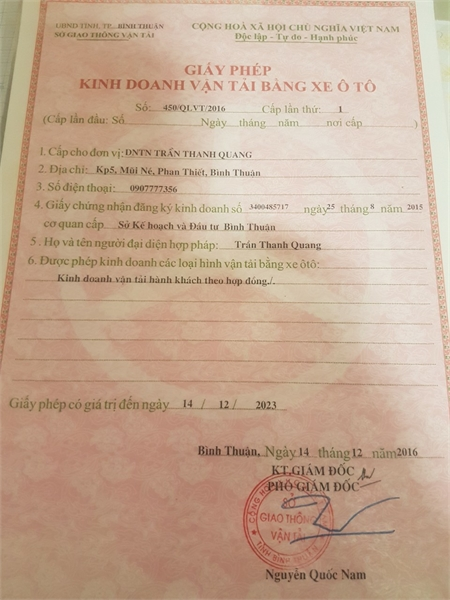 UBND TỈNH, TP.. BÌNH THUẬN
SỞ GIAO THÔNG VẬN TẢI
CỘNG HOÀ XÃ HỘI CHỦ NGHĨA VIỆT NAM
Độc lập - Tự do - Hạnh phúc
GIẤY PHÉP
KINH DOANH VẬN TẢI BẰNG XE Ô TÔ
Số: 450/QLVT/2016 Cấp lần thứ: 1
(Cấp lần đầu: Số Ngày tháng năm nơi cấp
1. Cấp cho đơn vị: DNTN TRẦN THANH QUANG
2. Địa chỉ: Kp5, Mũi Né, Phan Thiết, Bình Thuận
3. Số điện thoại: 0907777356
4. Giấy chứng nhận đăng ký kinh doanh số 3400485717 ngày 25 tháng 8 năm 2015
cơ quan cấp Sở Kế hoạch và Đầu tư Bình Thuận
5. Họ và tên người đại diện hợp pháp: Trần Thanh Quang
6. Được phép kinh doanh các loại hình vận tải bằng xe ôtô:
Kinh doanh vận tải hành khách theo hợp đồng./.
Giấy phép có giá trị đến ngày 14 / 12 / 2023
Bình Thuận, Ngày 14 tháng 12 năm 2016
KT.GIÁM ĐỐC
PHÓ GIÁM ĐỐC
SỞ
GIAO THÔNG
VẬN TẢI
Nguyễn Quốc Nam